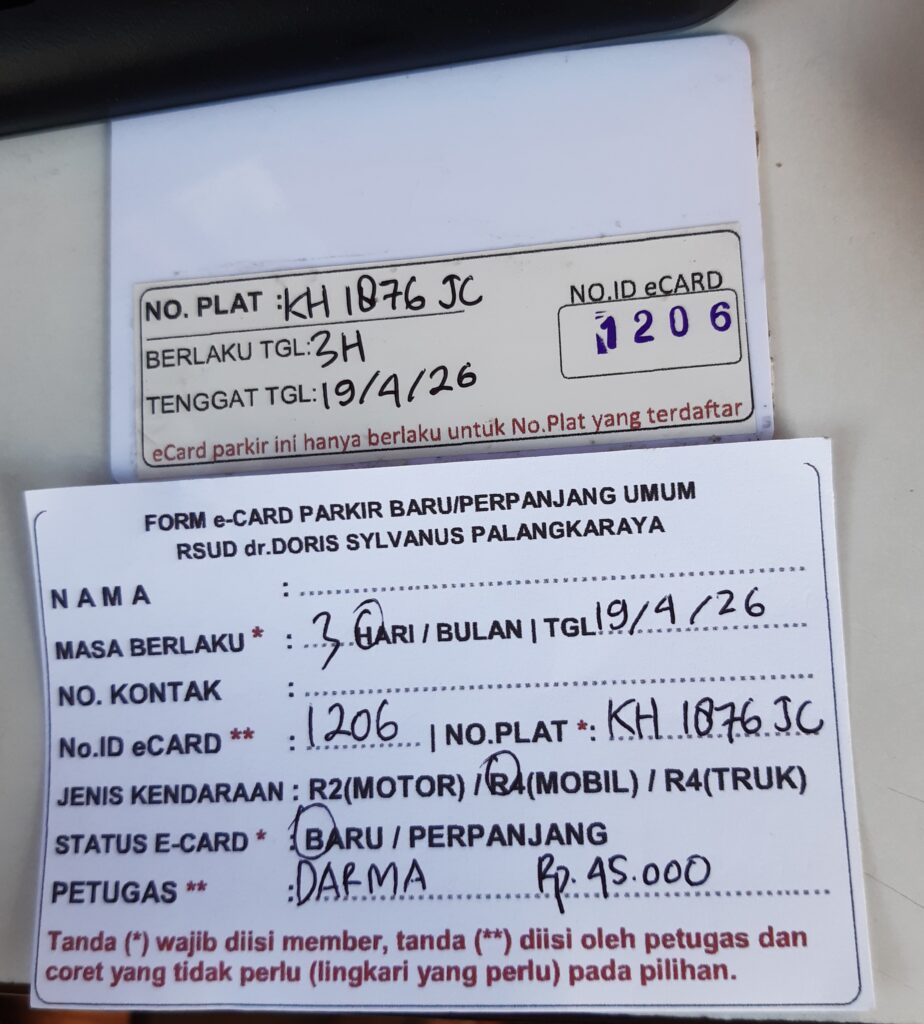 NO. PLAT : KH 1876 JC
NO.ID eCARD
1206
BERLAKU TGL: 3H
TENGGAT TGL: 19/4/26
eCard parkir ini hanya berlaku untuk No.Plat yang terdaftar
FORM e-CARD PARKIR BARU/PERPANJANG UMUM
RSUD dr.DORIS SYLVANUS PALANGKARAYA
NAMA :
MASA BERLAKU * : 3 HARI / BULAN | TGL 19/4/26
NO. KONTAK :
No.ID eCARD ** : 1206 | NO.PLAT *: KH 1876 JC
JENIS KENDARAAN : R2(MOTOR) / R4(MOBIL) / R4(TRUK)
STATUS E-CARD * : BARU / PERPANJANG
PETUGAS ** : DARMA Rp. 45.000
Tanda (*) wajib diisi member, tanda (**) diisi oleh petugas dan
coret yang tidak perlu (lingkari yang perlu) pada pilihan.